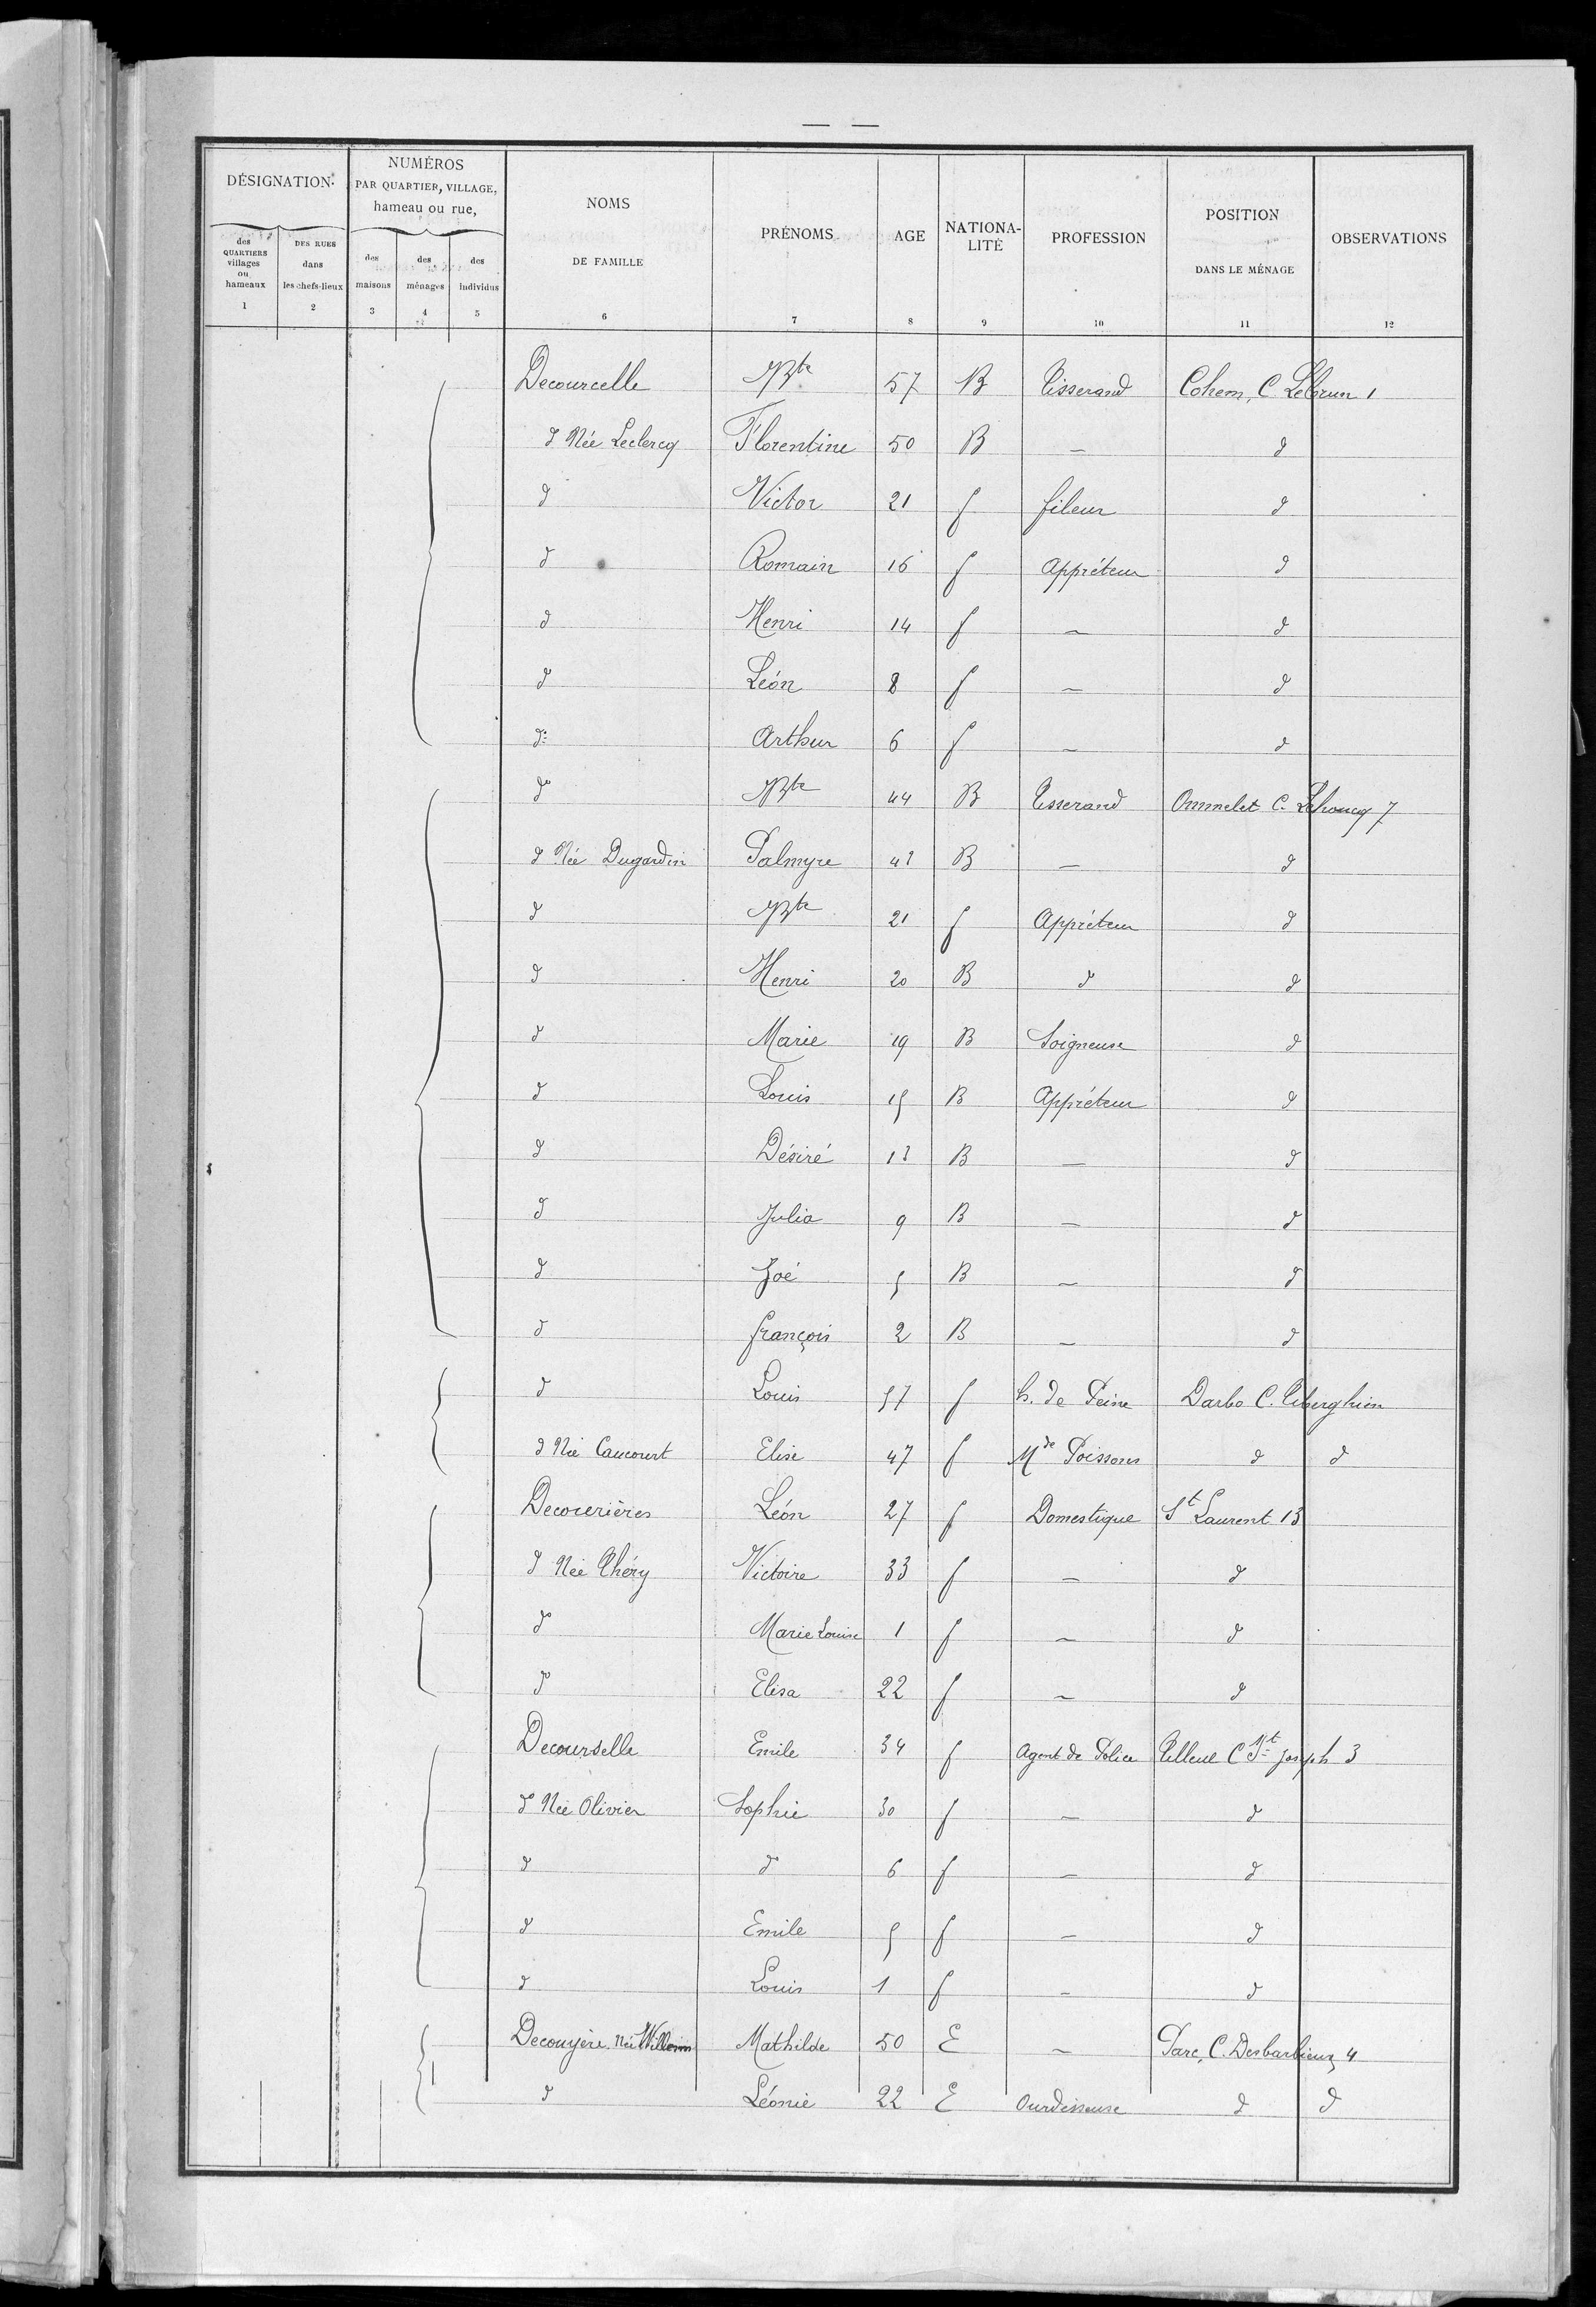 DÉSIGNATION
des QUARTIERS villages ou hameaux
1
DES RUES dans les chefs-lieux
2
NUMÉROS
PAR QUARTIER, VILLAGE,
hameau ou rue,
des maisons
3
des ménages
4
des individus
5
NOMS
DE FAMILLE
6
PRÉNOMS
7
AGE
8
NATIONA-
LITÉ
9
PROFESSION
10
POSITION
DANS LE MÉNAGE
11
OBSERVATIONS
12
Decourcelle JBte 57 B Tisserand Cohem, C Lebrun 1
d Née Leclercq Florentine 50 B — d
d Victor 21 f fileur d
d Romain 16 f Appréteur d
d Henri 14 f — d
d Léon 8 f — d
d° Arthur 6 f — d
d° JBte 44 B Tisserand Ommelet C. Lehoucq 7
d Née Dugardin Palmyre 42 B — d
d JBte 21 f Appréteur d
d Henri 20 B d d
d Marie 19 B Soigneuse d
d Louis 15 B Appréteur d
d Désiré 13 B — d
d Julia 9 B — d
d Zoé 5 B — d
d françois 2 B — d
d Louis 57 f h. de Peine Darbo C. Tiberghien
d Née Caucourt Elise 47 f Mde Poissons d d
Decourières Léon 27 f Domestique St Laurent 13
d Née Théry Victoire 33 f — d
d° Marie Louise 1 f — d
d° Elisa 22 f — d
Decourselle Emile 34 f Agent de Police Tilleul C St Joseph 3
d Née Olivier Sophie 30 f — d
d d° 6 f — d
d Emile 5 f — d
d Louis 1 f — d
Decouyère Née Willemn Mathilde 50 E — Parc, C. Desbarbieux 4
d Léonie 22 E Ourdisseuse d d